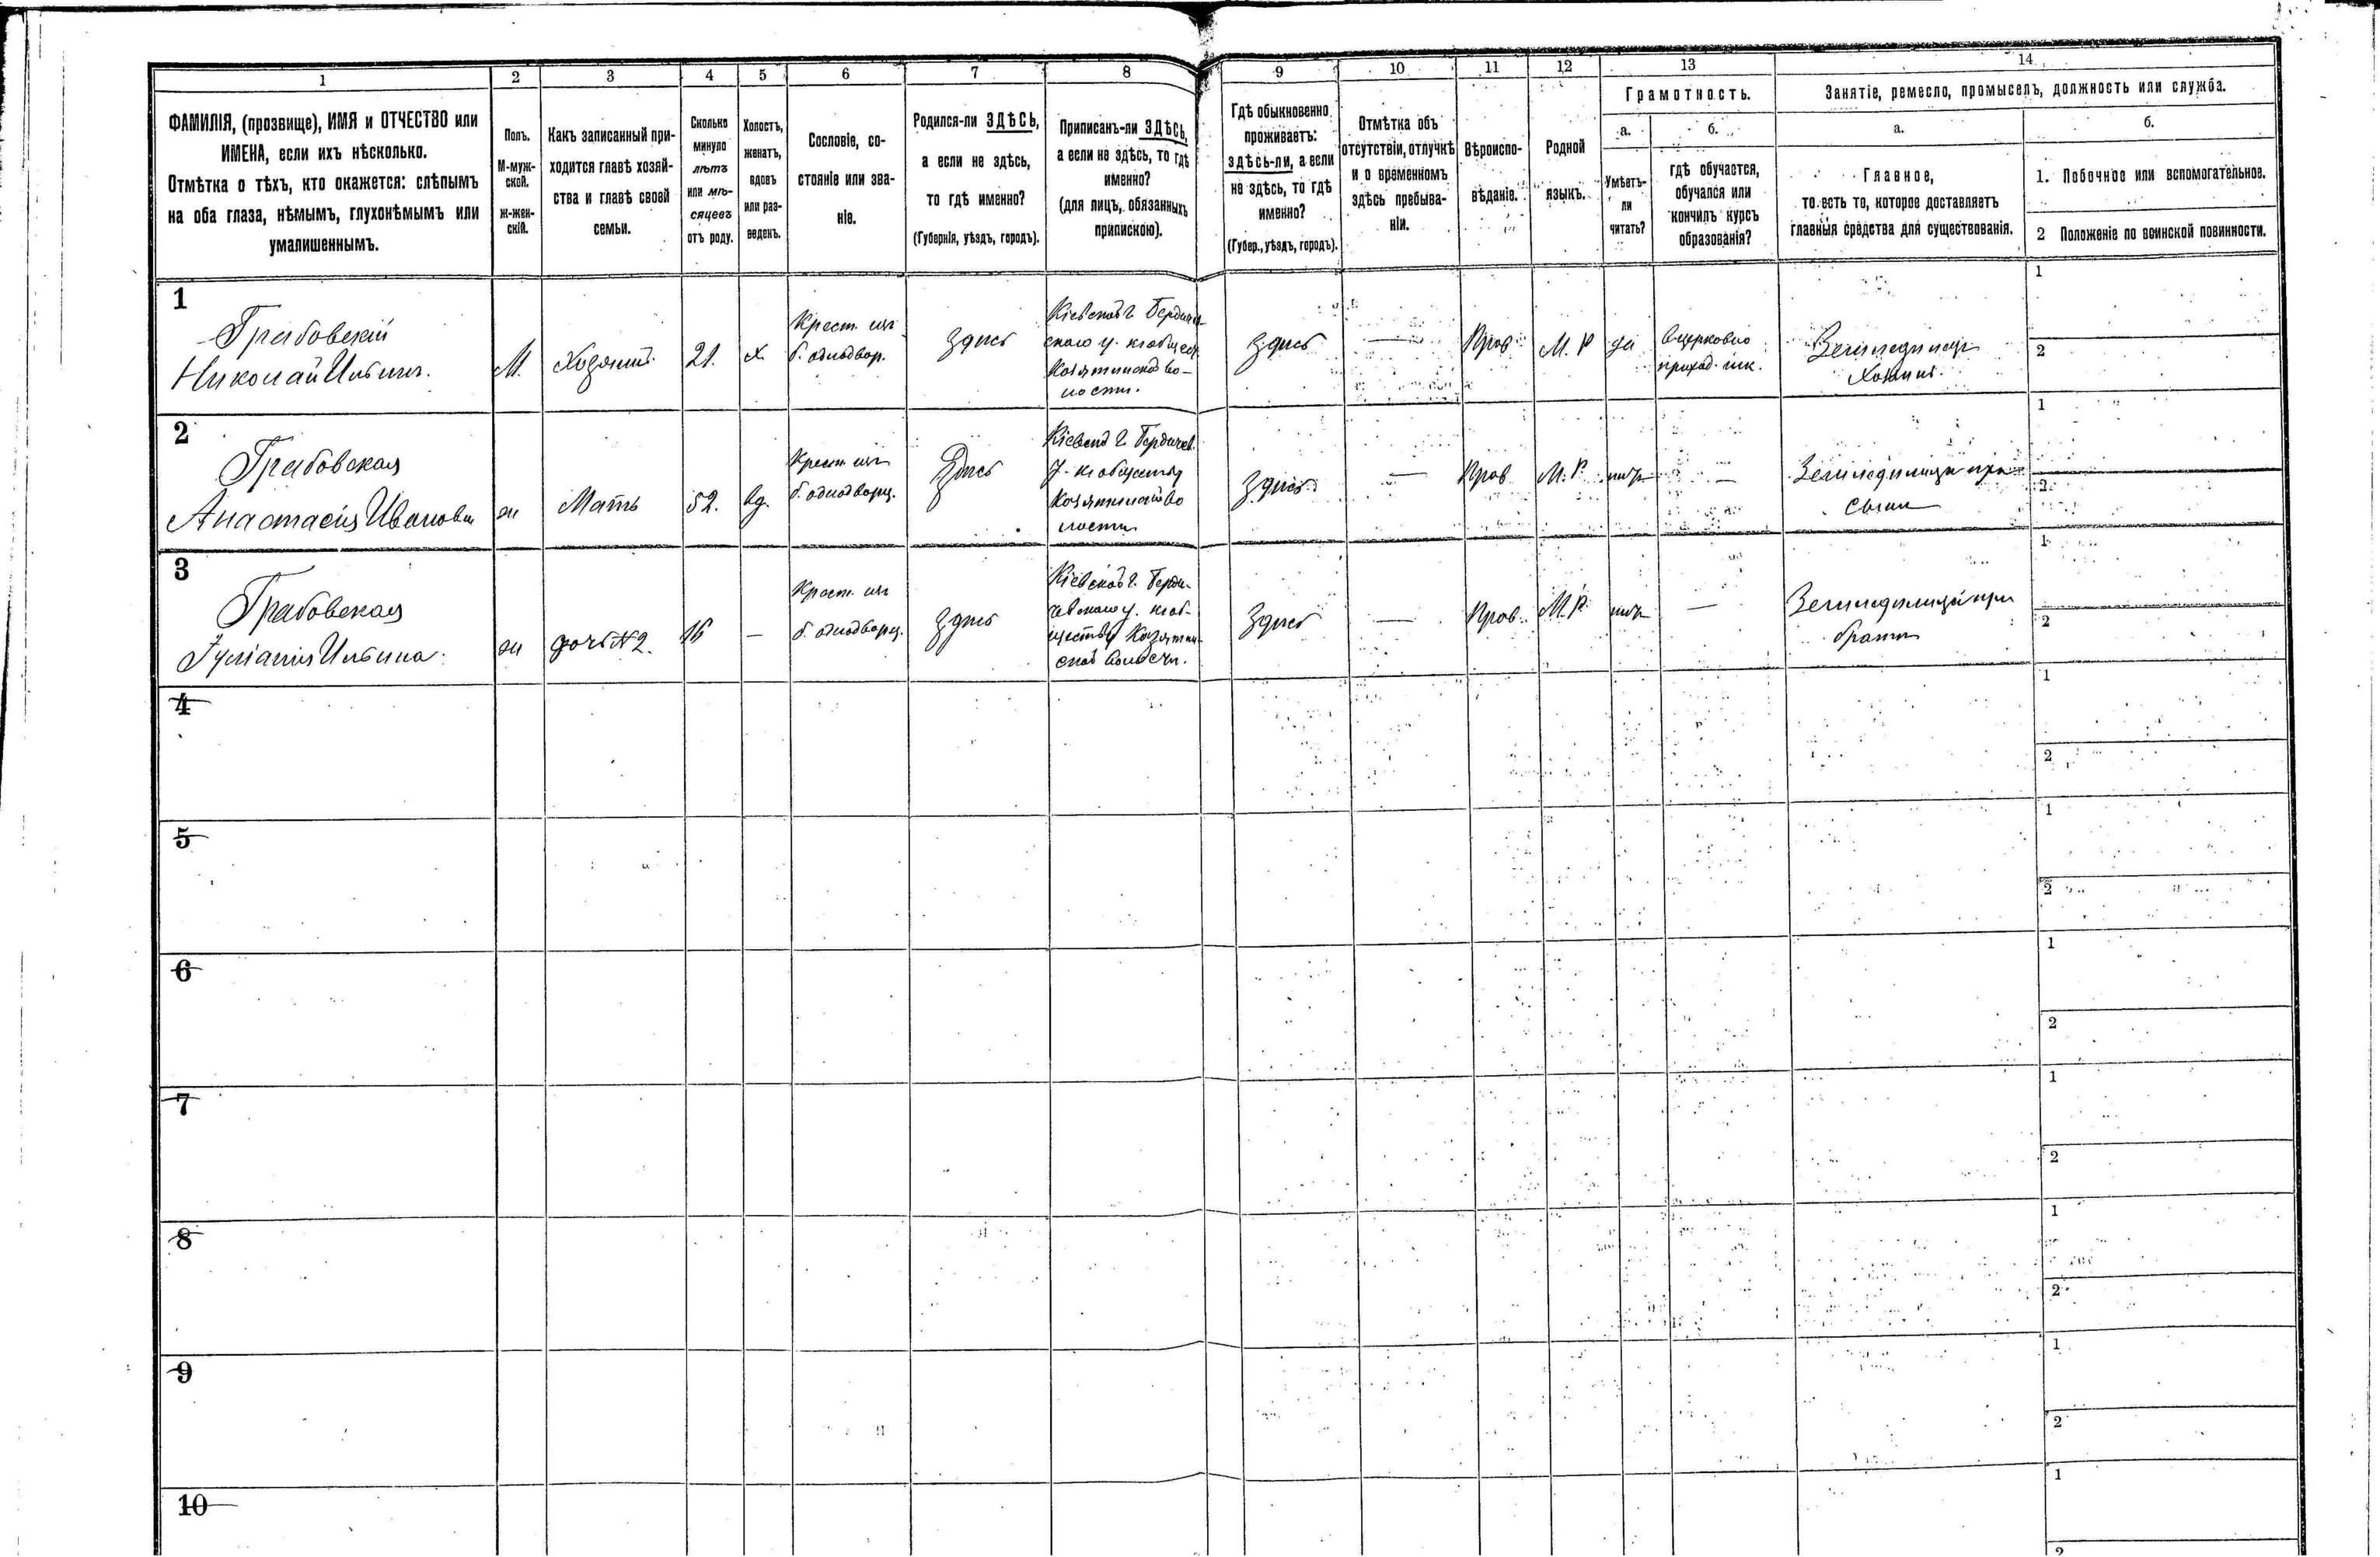 1 2 3 4 5 6 7 8 9 10 11 12 13 14
ФАМИЛІЯ, (прозвище), ИМЯ и ОТЧЕСТВО или
ИМЕНА, если ихъ нѣсколько.
Отмѣтка о тѣхъ, кто окажется: слѣпымъ
на оба глаза, нѣмымъ, глухонѣмымъ или
умалишеннымъ.
Полъ.
М-муж-
ской.
Ж-жен-
скій.
Какъ записанный при-
ходится главѣ хозяй-
ства и главѣ своей
семьи.
Сколько
минуло
лѣтъ
или мѣ-
сяцевъ
отъ роду.
Холостъ,
женатъ,
вдовъ
или раз-
веденъ.
Сословіе, со-
стояніе или зва-
ніе.
Родился-ли ЗДѢСЬ,
а если не здѣсь,
то гдѣ именно?
(Губернія, уѣздъ, городъ).
Приписанъ-ли ЗДѢСЬ,
а если не здѣсь, то гдѣ
именно?
(для лицъ, обязанныхъ
припискою).
Гдѣ обыкновенно
проживаетъ:
здѣсь-ли, а если
не здѣсь, то гдѣ
именно?
(Губер., уѣздъ, городъ).
Отмѣтка объ
отсутствіи, отлучкѣ
и о временномъ
здѣсь пребыва-
ніи.
Вѣроиспо-
вѣданіе.
Родной
языкъ.
Грамотность.
а.
Умѣетъ-
ли
читать?
б.
гдѣ обучается,
обучался или
кончилъ курсъ
образованія?
Занятіе, ремесло, промыселъ, должность или служба.
а.
Главное,
то есть то, которое доставляетъ
главныя средства для существованія.
б.
1. Побочное или вспомогательное.
2 Положеніе по воинской повинности.
1
Грабовскій
Николай Ильинъ.
М.
Хозяинъ
21.
Х.
Крест. изъ
б. однодвор.
Здѣсь
Кіевской г. Бердичев-
скаго у. къ общест
Козятинской во-
лости.
Здѣсь
—
Прав.
М. Р
да
В церковно
приход. шк.
Земледѣлецъ
Хозяинъ.
1
2
2
Грабовская
Анастасія Иванова
ж
Мать
52.
вд.
Крест изъ
б. однодворц.
Здѣсь
Кіевской г. Бердичев.
у. къ обществу
Козятинской во
лости
Здѣсь
—
Прав
М. Р.
нѣтъ
—
Земледѣлица при
сынѣ
1
2
3
Грабовская
Іуліанія Ильина.
ж
дочь № 2.
16
—
Крест. изъ
б. однодворц.
Здѣсь
Кіевской г. Берди-
чевскаго у. къ об-
ществу Козятин-
ской волости.
Здѣсь
—
Прав.
М. Р.
нѣтъ
—
Земледѣлица при
братѣ
1
2
4
1
2
5
1
2
6
1
2
7
1
2
8
1
2
9
1
2
10
1
2